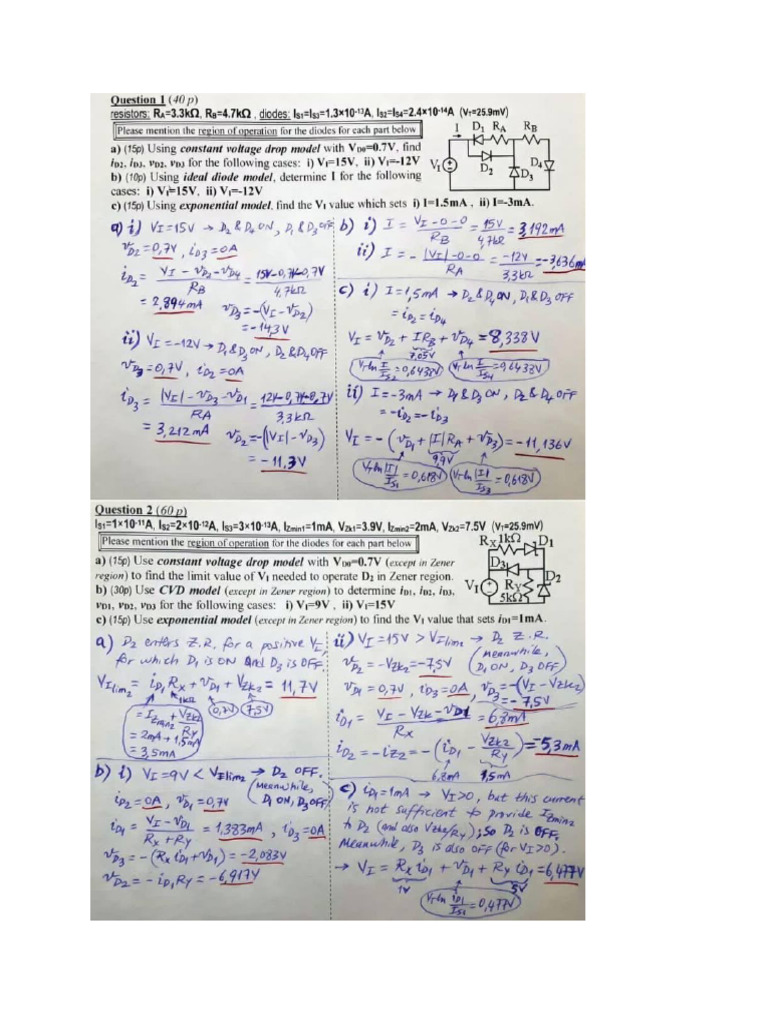 Question 1 (40 p)
resistors: RA=3.3kΩ, RB=4.7kΩ , diodes: IS1=IS3=1.3×10-13A, IS2=IS4=2.4×10-14A (VT=25.9mV)
Please mention the region of operation for the diodes for each part below
a) (15p) Using constant voltage drop model with VD0=0.7V, find
iD2, iD3, vD2, vD3 for the following cases: i) VI=15V, ii) VI=-12V
b) (10p) Using ideal diode model, determine I for the following
cases: i) VI=15V, ii) VI=-12V
c) (15p) Using exponential model, find the VI value which sets i) I=1.5mA , ii) I=-3mA.
I D1 RA RB
VI D2 D3 D4
a) i) VI=15V → D2 & D4 ON, D1 & D3 OFF
vD2=0,7V, iD3=0A
iD2= VI-vD2-vD4 / RB = 15V-0,7V-0,7V / 4,7kΩ
= 2,894mA
vD3=-(VI-vD2)
=-14,3V
ii) VI=-12V → D1 & D3 ON, D2 & D4 OFF
vD3=0,7V, iD2=0A
iD3= |VI|-vD3-vD1 / RA = 12V-0,7V-0,7V / 3,3kΩ
= 3,212mA
vD2=-(|VI|-vD3)
= -11,3V
b) i) I = VI-0-0 / RB = 15V / 4,7kΩ = 3,192mA
ii) I = - |VI|-0-0 / RA = -12V / 3,3kΩ = -3,636mA
c) i) I=1,5mA → D2 & D4 ON, D1 & D3 OFF
= iD2 = iD4
VI = vD2 + IRB + vD4 = 8,338V
7,05V
VT ln I/IS2 = 0,6438V
VT ln I/IS4 = 0,6438V
ii) I=-3mA → D1 & D3 ON, D2 & D4 OFF
= -iD2 = -iD3
VI = -(vD1 + |I|RA + vD3) = -11,136V
9,9V
VT ln |I|/IS1 = 0,618V
VT ln |I|/IS3 = 0,618V
Question 2 (60 p)
IS1=1×10-11A, IS2=2×10-12A, IS3=3×10-13A, IZmin1=1mA, VZk1=3.9V, IZmin2=2mA, VZk2=7.5V (VT=25.9mV)
Please mention the region of operation for the diodes for each part below
a) (15p) Use constant voltage drop model with VD0=0.7V (except in Zener
region) to find the limit value of VI needed to operate D2 in Zener region.
b) (30p) Use CVD model (except in Zener region) to determine iD1, iD2, iD3,
vD1, vD2, vD3 for the following cases: i) VI=9V , ii) VI=15V
c) (15p) Use exponential model (except in Zener region) to find the VI value that sets iD1=1mA.
RX 1kΩ D1
D3
VI RY D2
5kΩ
a) D2 enters Z.R. for a positive VI,
for which D1 is ON and D3 is OFF.
VIlim2 = iD1 RX + vD1 + VZk2 = 11,7V
1kΩ 0,7V 7,5V
= IZmin2 + VZk2/RY
= 2mA + 1,5mA
= 3,5mA
b) i) VI=9V < VIlim2 → D2 OFF.
(Meanwhile, D1 ON, D3 OFF)
iD2=0A, vD1=0,7V
iD1= VI-vD1 / RX+RY = 1,383mA, iD3=0A
vD3 = -(RX iD1+vD1)=-2,083V
vD2=-iD1RY=-6,917V
ii) VI=15V > VIlim2 → D2 Z.R.
(Meanwhile, D1 ON, D3 OFF)
vD2=-VZk2=-7,5V
vD1=0,7V, iD3=0A, vD3=-(VI-VZk2)
=-7,5V
iD1= VI-VZk-vD1 / RX = 6,8mA
iD2=-iZ2=-(iD1 - VZk2/RY)=-5,3mA
6,8mA 1,5mA
c) iD1=1mA → VI>0, but this current
is not sufficient to provide IZmin2
to D2 (and also VZk2/RY); So D2 is OFF,
Meanwhile, D3 is also OFF (for VI>0).
→ VI = RX iD1 + vD1 + RY iD1 = 6,477V
1V 5V
VT ln iD1/IS1 = 0,477V